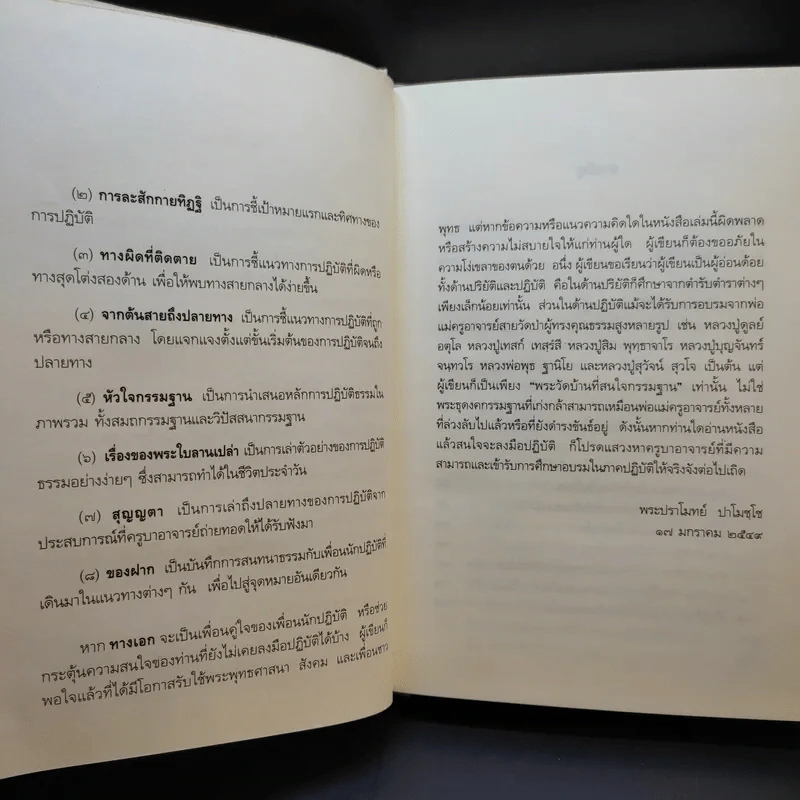 (๒) การละสักกายทิฏฐิ เป็นการชี้เป้าหมายแรกและทิศทางของ
การปฏิบัติ
(๓) ทางผิดที่ติดตาย เป็นการชี้แนวทางการปฏิบัติที่ผิดหรือ
ทางสุดโต่งสองด้าน เพื่อให้พบทางสายกลางได้ง่ายขึ้น
(๔) จากต้นสายถึงปลายทาง เป็นการชี้แนวทางการปฏิบัติที่ถูก
หรือทางสายกลาง โดยแจกแจงตั้งแต่ขั้นเริ่มต้นของการปฏิบัติจนถึง
ปลายทาง
(๕) หัวใจกรรมฐาน เป็นการนำเสนอหลักการปฏิบัติธรรมใน
ภาพรวม ทั้งสมถกรรมฐานและวิปัสสนากรรมฐาน
(๖) เรื่องของพระใบลานเปล่า เป็นการเล่าตัวอย่างของการปฏิบัติ
ธรรมอย่างง่ายๆ ซึ่งสามารถทำได้ในชีวิตประจำวัน
(๗) สุญญตา เป็นการเล่าถึงปลายทางของการปฏิบัติจาก
ประสบการณ์ที่ครูบาอาจารย์ถ่ายทอดให้ได้รับฟังมา
(๘) ของฝาก เป็นบันทึกการสนทนาธรรมกับเพื่อนนักปฏิบัติที่
เดินมาในแนวทางต่างๆ กัน เพื่อไปสู่จุดหมายอันเดียวกัน
หาก ทางเอก จะเป็นเพื่อนคู่ใจของเพื่อนนักปฏิบัติ หรือช่วย
กระตุ้นความสนใจของท่านที่ยังไม่เคยลงมือปฏิบัติได้บ้าง ผู้เขียนก็
พอใจแล้วที่ได้มีโอกาสรับใช้พระพุทธศาสนา สังคม และเพื่อนชาว
พุทธ แต่หากข้อความหรือแนวความคิดใดในหนังสือเล่มนี้ผิดพลาด
หรือสร้างความไม่สบายใจให้แก่ท่านผู้ใด ผู้เขียนก็ต้องขออภัยใน
ความโง่เขลาของตนด้วย อนึ่ง ผู้เขียนขอเรียนว่าผู้เขียนเป็นผู้อ่อนด้อย
ทั้งด้านปริยัติและปฏิบัติ คือในด้านปริยัติก็ศึกษาจากตำรับตำราต่างๆ
เพียงเล็กน้อยเท่านั้น ส่วนในด้านปฏิบัติแม้จะได้รับการอบรมจากพ่อ
แม่ครูอาจารย์สายวัดป่าผู้ทรงคุณธรรมสูงหลายรูป เช่น หลวงปู่ดูลย์
อตุโล หลวงปู่เทสก์ เทสฺรํสี หลวงปู่สิม พุทฺธาจาโร หลวงปู่บุญจันทร์
จนฺทวโร หลวงพ่อพุธ ฐานิโย และหลวงปู่สุวัจน์ สุวโจ เป็นต้น แต่
ผู้เขียนก็เป็นเพียง “พระวัดบ้านที่สนใจกรรมฐาน” เท่านั้น ไม่ใช่
พระธุดงคกรรมฐานที่เก่งกล้าสามารถเหมือนพ่อแม่ครูอาจารย์ทั้งหลาย
ที่ล่วงลับไปแล้วหรือที่ยังดำรงขันธ์อยู่ ดังนั้นหากท่านใดอ่านหนังสือ
แล้วสนใจจะลงมือปฏิบัติ ก็โปรดแสวงหาครูบาอาจารย์ที่มีความ
สามารถและเข้ารับการศึกษาอบรมในภาคปฏิบัติให้จริงจังต่อไปเถิด
พระปราโมทย์ ปาโมชฺโช
๑๗ มกราคม ๒๕๔๙